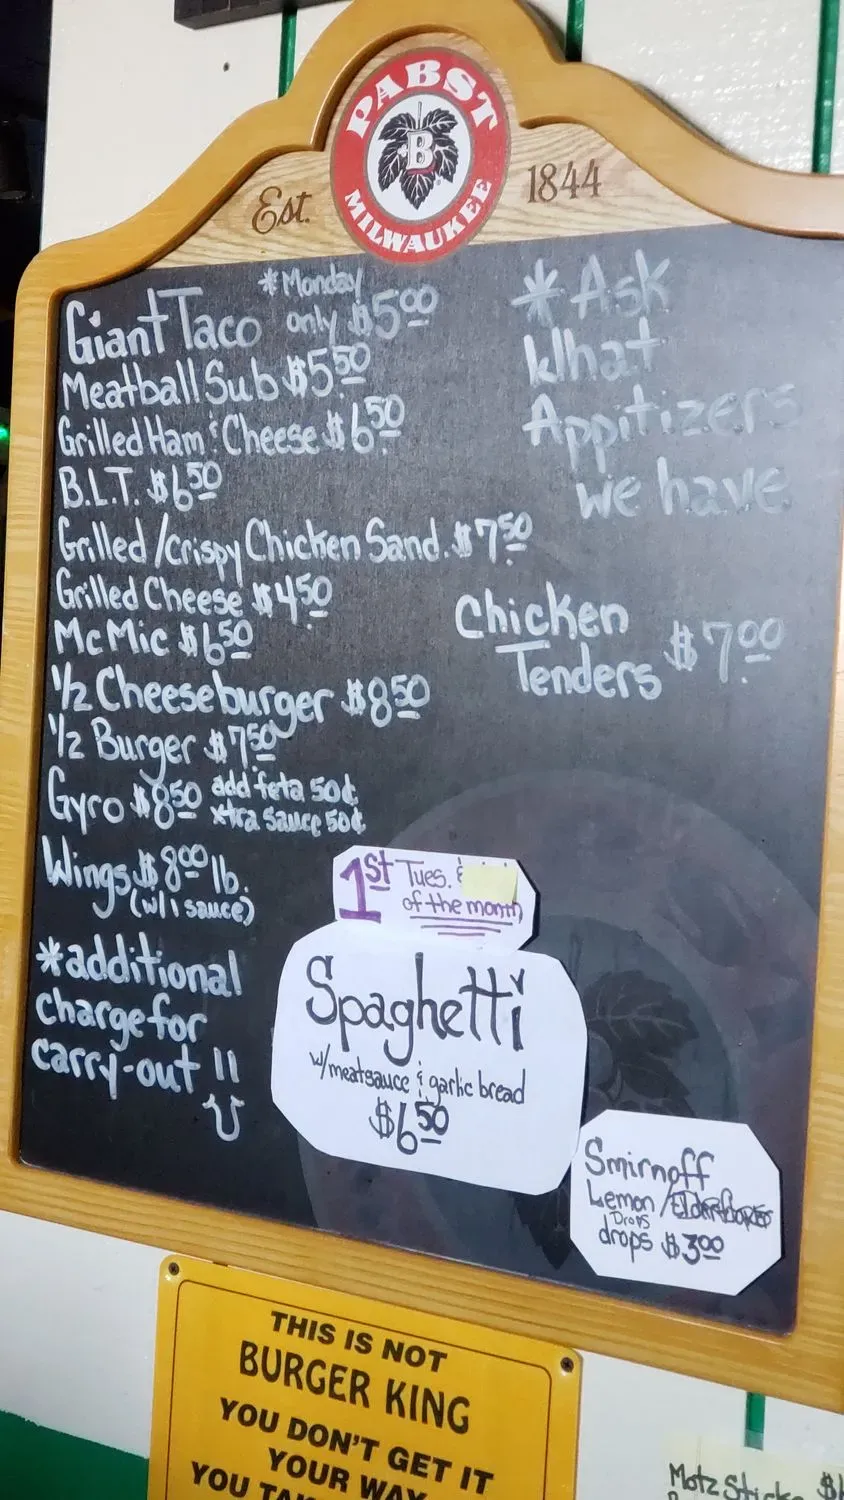 PABST
B
MILWAUKEE
Est. 1844
Giant Taco *Monday only $5.00
Meatball Sub $5.50
Grilled Ham & Cheese $6.50
B.L.T. $6.50
Grilled/Crispy Chicken Sand. $7.50
Grilled Cheese $4.50
Mc Mic $6.50
1/2 Cheeseburger $8.50
1/2 Burger $7.50
Gyro $8.50 add feta 50¢
xtra sauce 50¢
Wings $8.00 lb.
(w/1 sauce)
*additional
charge for
carry-out !!
*Ask
What
Appitizers
we have
Chicken
Tenders $7.00
1st Tues. &
of the month
Spaghetti
w/meatsauce & garlic bread
$6.50
Smirnoff
Lemon/
Drops
drops $3.00
THIS IS NOT
BURGER KING
YOU DON'T GET IT
YOUR WAY
YOU
Motz Sticks $